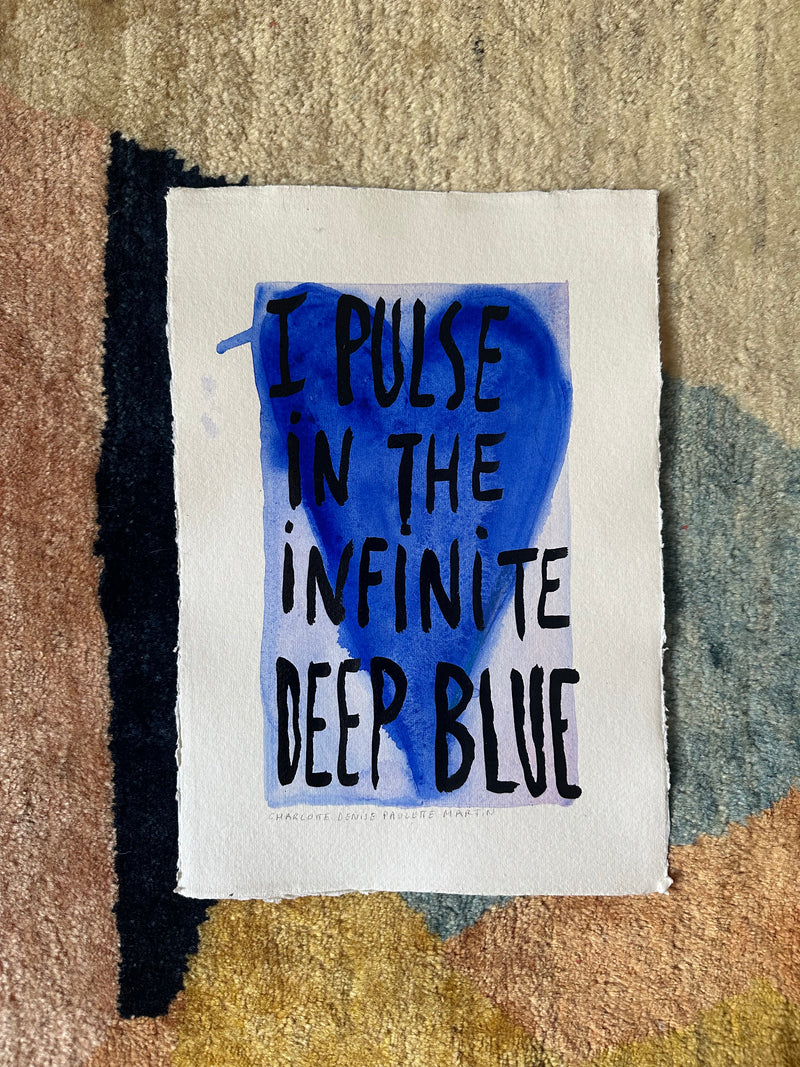 I PULSE
iN THE
iNFiNiTE
DEEP BLUE
CHARLOTTE DENISE PAULETTE MARTIN